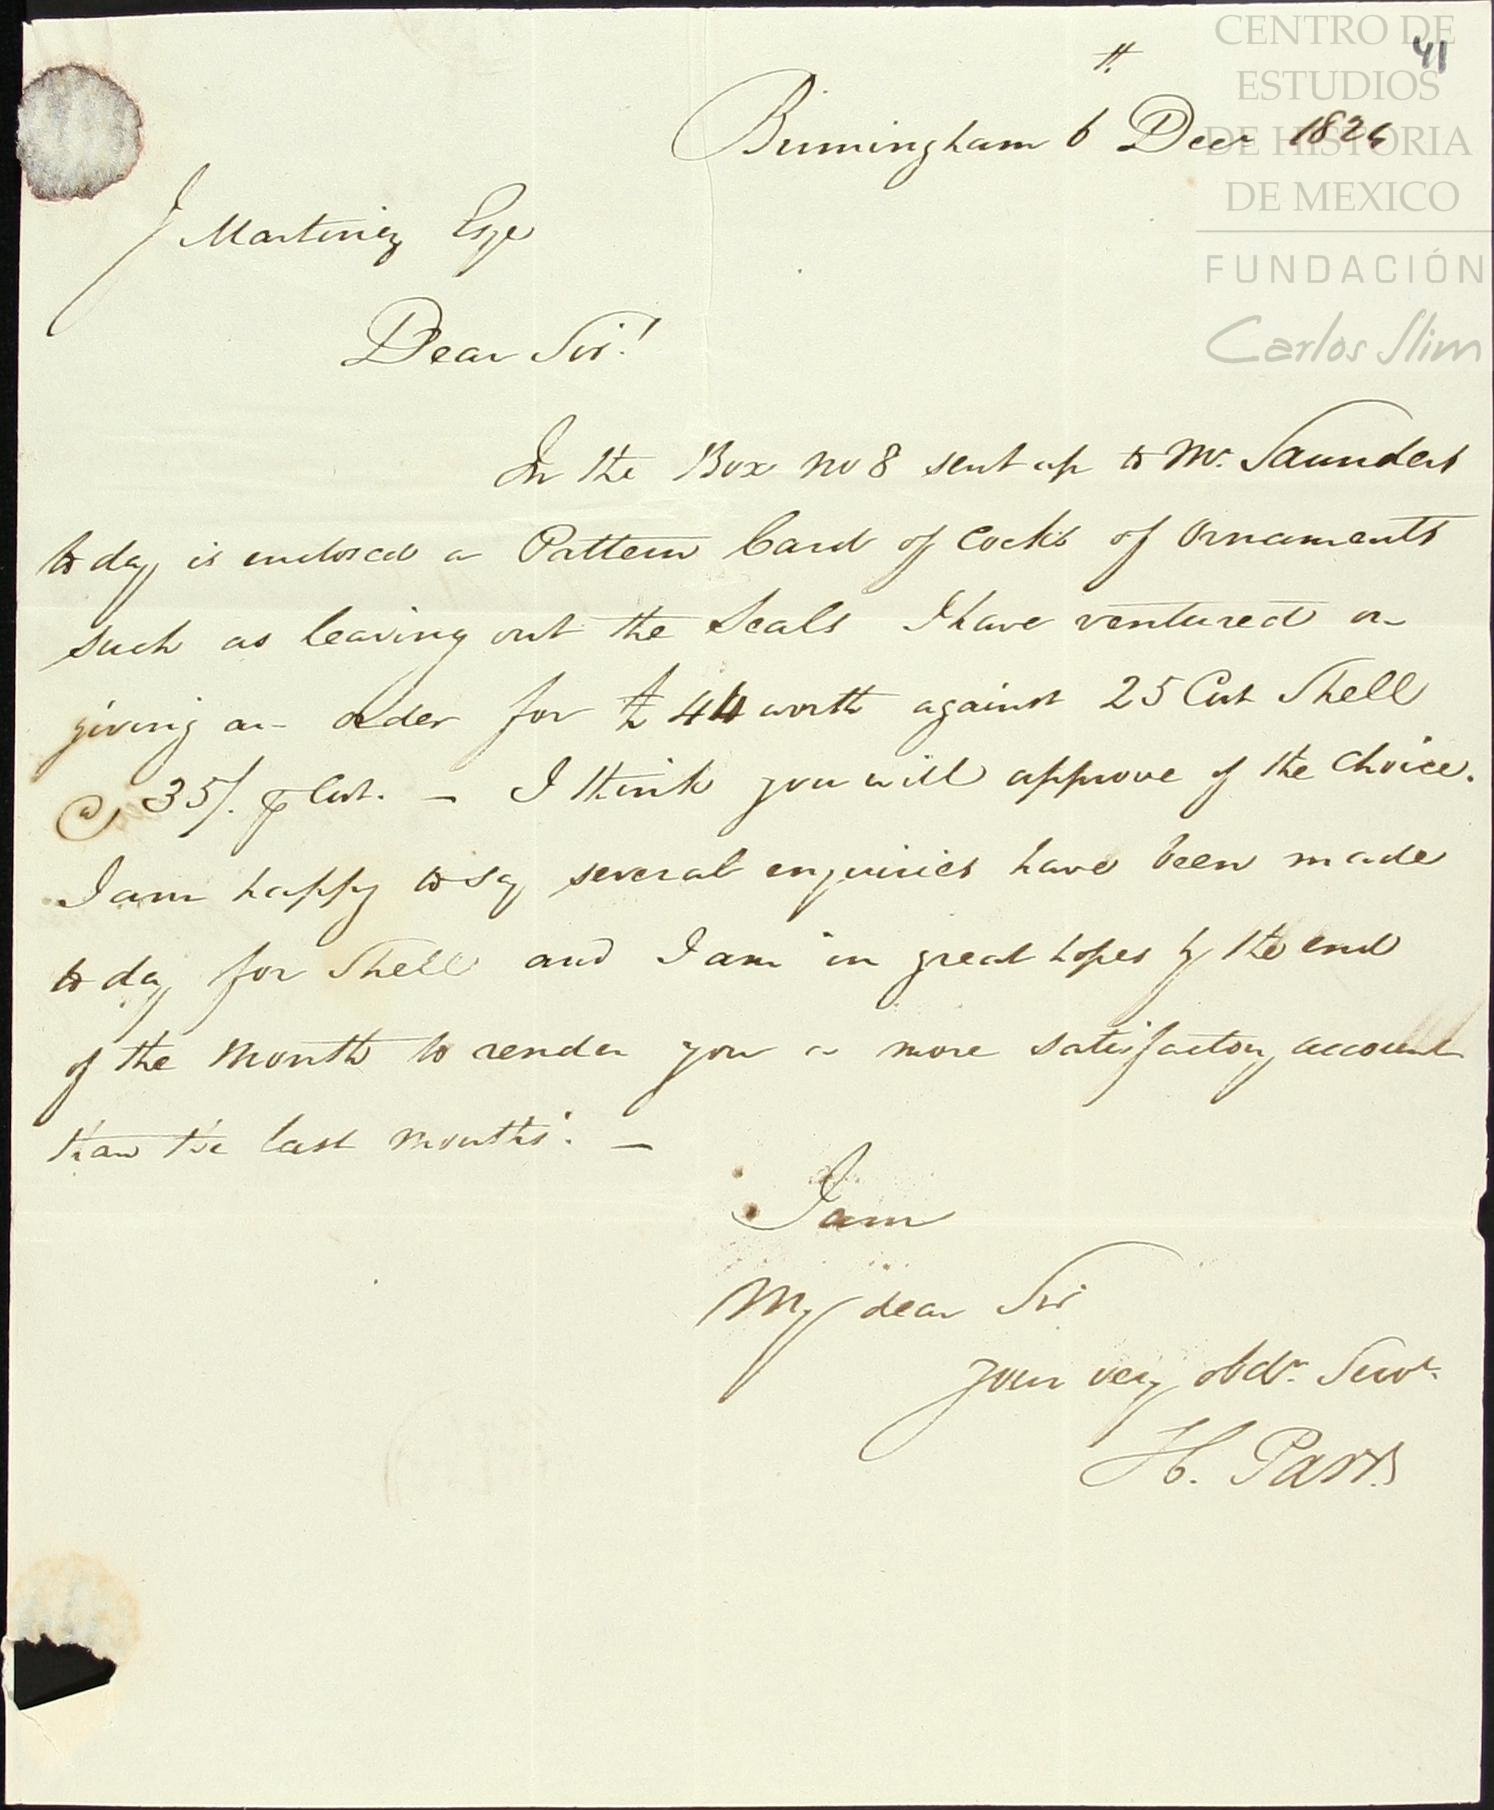 CENTRO DE
ESTUDIOS
DE HISTORIA
DE MEXICO
FUNDACIÓN
Carlos Slim
41
Birmingham 6 Decr 182
J Martinez Esqe
Dear Sir!
In the Box no 8 sent up to Mr. Saunders
to day is enclosed a Pattern Card of Cocks of Ornaments
such as leaving out the Seals I have ventured on
giving an order for £ 44 worth against 25 Cwt Shell
@ 35/. ⅌ Cwt. — I think you will approve of the Choice.
I am happy to say several enquiries have been made
to day for Shell and I am in great hopes by the end
of the Month to render you a more satisfactory account
than the last months'. —
I am
My dear Sir
your very obdt. Servt.
H.